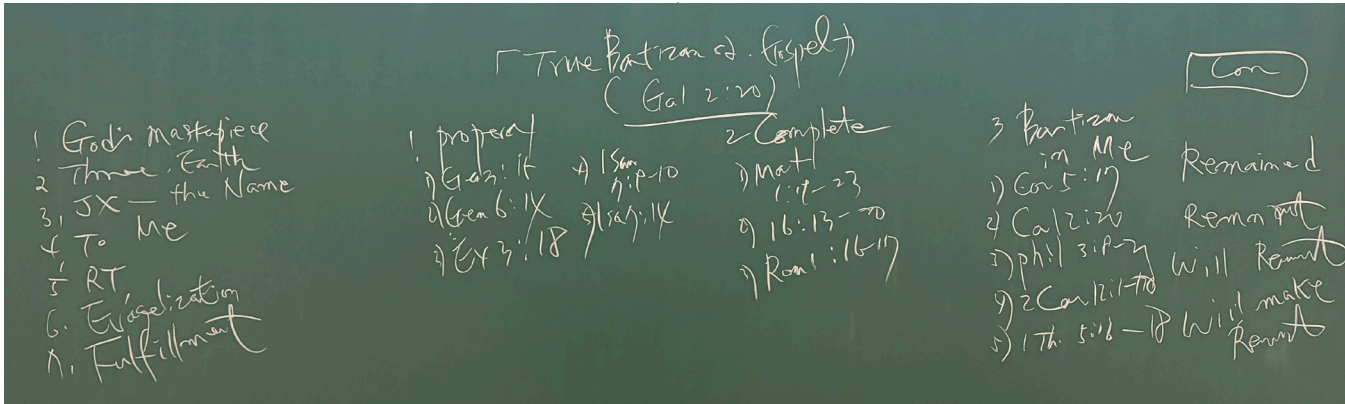 「True Partizan of. Gospel」
(Gal 2:20)
Con
1. God's masterpiece
2 Throne. Earth
3, JX — the Name
4 To Me
5 RT
6. Evagelization
7. Fulfillment
1 proper
1) Gen 3:15
2) Gen 6:14
3) Ex 3:18
4) 1 Sam
5) Isa 7:14
2 Complete
1) Matt
2) 16:13-20
3) Rom 1:16-17
3 Partizan
in Me
1) Cor 5:17
2) Gal 2:20
3) phil
4) 2 Cor
5) 1 Th. 5:16-18
Remained
Remnant
Will Remnt
Will make
Remnt